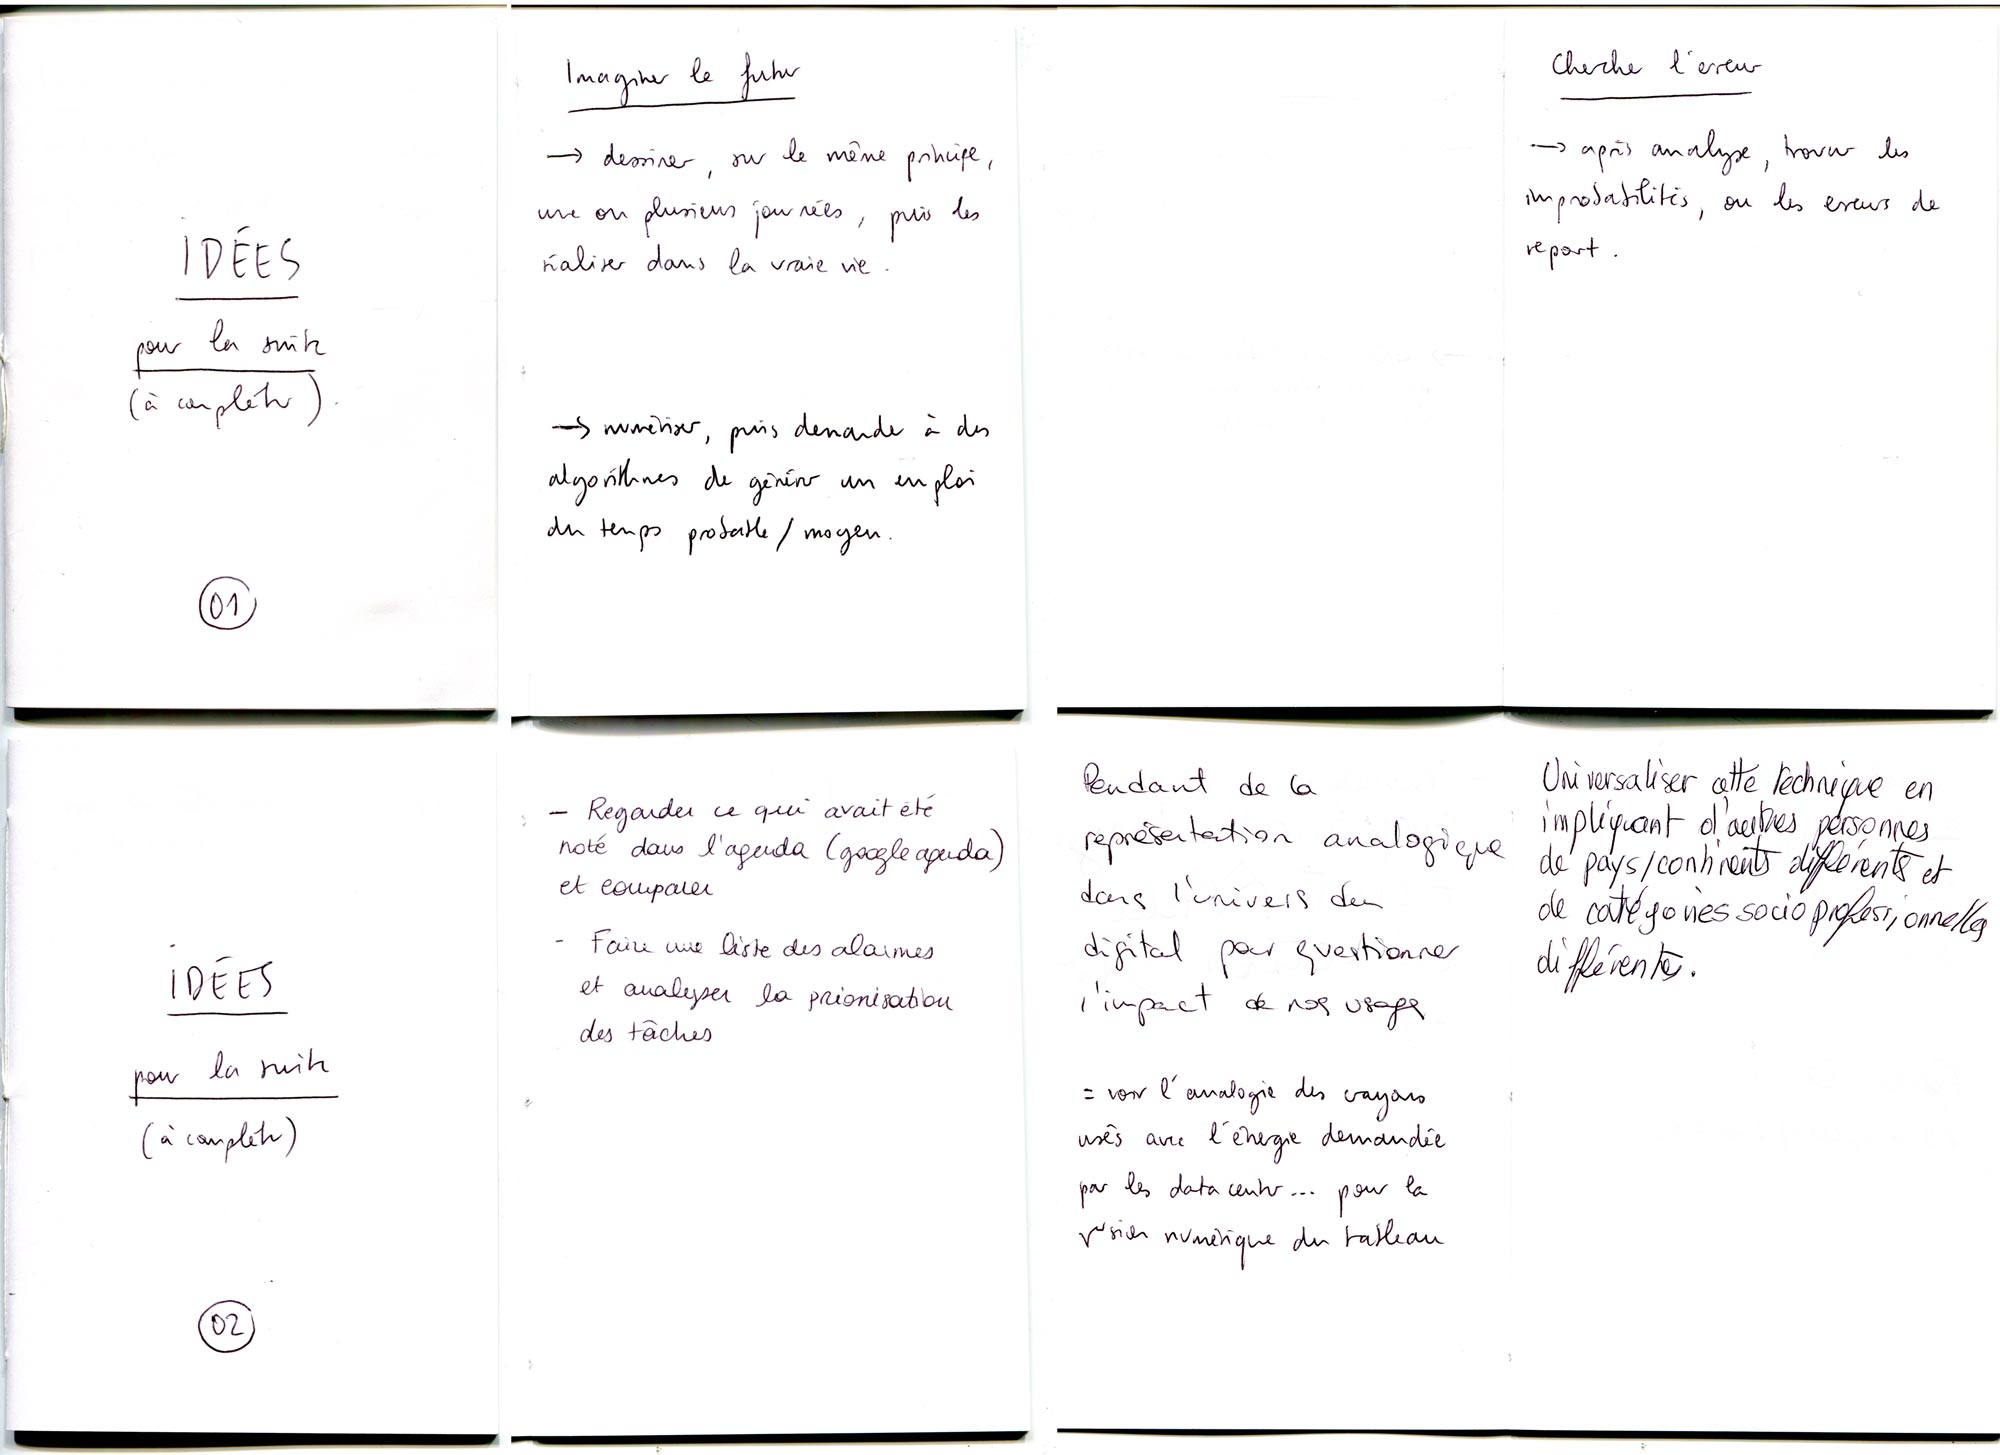 IDÉES
pour la suite
(à compléter).
01
Imaginer le futur
→ dessiner, sur le même principe,
une ou plusieurs journées, puis les
réaliser dans la vraie vie.
→ numériser, puis demander à des
algorithmes de générer un emploi
du temps probable/moyen.
Cherche l'erreur
→ après analyse, trouver les
improbabilités, ou les erreurs de
report.
IDÉES
pour la suite
(à compléter)
02
– Regarder ce qui avait été
noté dans l'agenda (google agenda)
et comparer
- Faire une liste des alarmes
et analyser la priorisation
des tâches
Pendant de la
représentation analogique
dans l'univers du
digital pour questionner
l'impact de nos usages
= voir l'analogie des crayons
usés avec l'énergie demandée
par les data center... pour la
version numérique du tableau
Universaliser cette technique en
impliquant d'autres personnes
de pays/continents différents et
de catégories socioprofessionnelles
différentes.